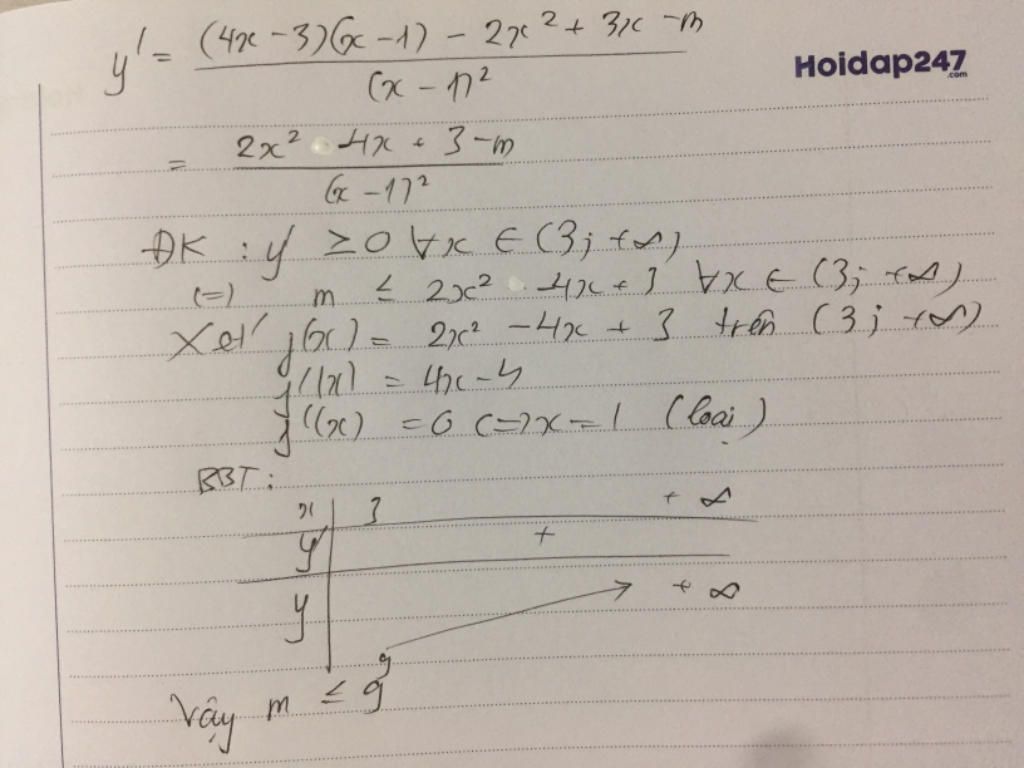 y' = (4x - 3)(x - 1) - 2x² + 3x - m
(x - 1)²
Hoidap247
.com
= 2x² - 4x + 3 - m
(x - 1)²
ĐK : y' ≥ 0 ∀x ∈ (3; +∞)
(=) m ≤ 2x² - 4x + 3 ∀x ∈ (3; +∞)
Xét g(x) = 2x² - 4x + 3 trên (3; +∞)
g'(x) = 4x - 4
g'(x) = 0 <=> x = 1 (loại)
BBT:
x 3 + ∞
y' +
y + ∞
9
Vậy m ≤ 9